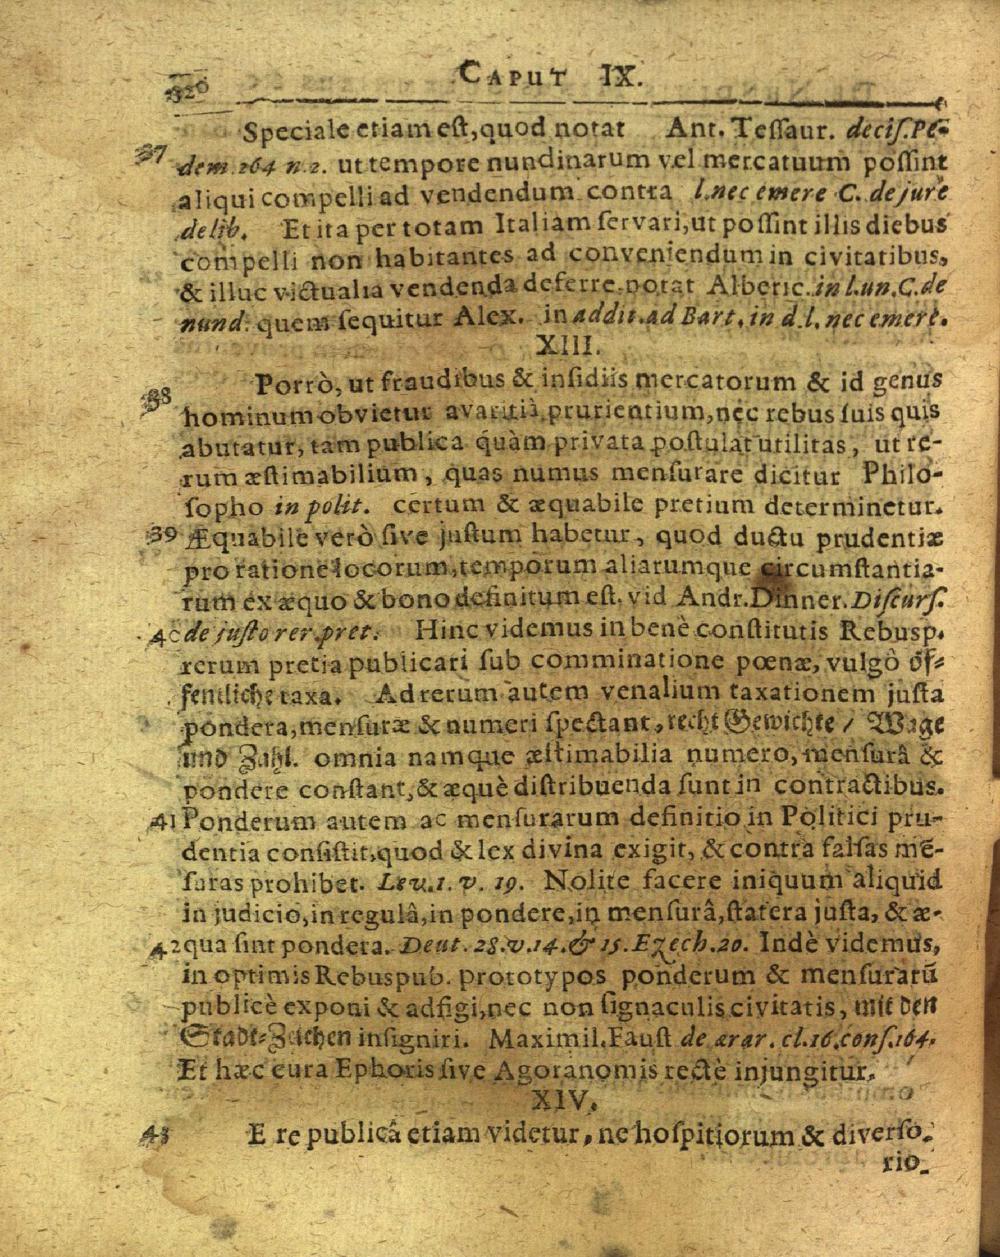 320 CAPUT IX.
Speciale etiam est, quod notat Ant. Tessaur. decis. Pe-
37 dem. 264 n. 2. ut tempore nundinarum vel mercatuum possint
aliqui compelli ad vendendum contra l. nec emere C. de jure
delib. Et ita per totam Italiam servari, ut possint illis diebus
compelli non habitantes ad conveniendum in civitatibus,
& illuc victualia vendenda deferre notat Alberic. in l. un. C. de
nund. quem sequitur Alex. in addit. ad Bart. in d. l. nec emere.
XIII.
38 Porrò, ut fraudibus & insidiis mercatorum & id genus
hominum obvietur avaritiâ prurientium, nec rebus suis quis
abutatur, tam publica quàm privata postulat utilitas, ut re-
rum æstimabilium, quas numus mensurare dicitur Philo-
sopho in polit. certum & æquabile pretium determinetur.
39 Æquabile verò sive justum habetur, quod ductu prudentiæ
pro ratione locorum, temporum aliarumque circumstantia-
rum ex æquo & bono definitum est. vid Andr. Dinner. Discurs.
40 de justo rer. pret. Hinc videmus in benè constitutis Rebusp.
rerum pretia publicari sub comminatione pœnæ, vulgò öf-
fentliche taxa. Ad rerum autem venalium taxationem justa
pondera, mensuræ & numeri spectant, recht Gewichte / Wage
und Zahl. omnia namque æstimabilia numero, mensurâ &
pondere constant, & æquè distribuenda sunt in contractibus.
41 Ponderum autem ac mensurarum definitio in Politici pru-
dentia consistit, quod & lex divina exigit, & contra falsas mē-
suras prohibet. Lev. 1. v. 19. Nolite facere iniquum aliquid
in judicio, in regulâ, in pondere, in mensurâ, statera justa, & æ-
42 qua sint pondera. Deut. 28. v. 14. & 15. Ezech. 20. Indè videmus,
in optimis Rebuspub. prototypos ponderum & mensurarū
publicè exponi & adfigi, nec non signaculis civitatis, mit den
Stadt-Zeichen insigniri. Maximil. Faust de ærar. cl. 16. cons. 164.
Et hæc cura Ephoris sive Agoranomis rectè injungitur.
XIV.
43 E re publicâ etiam videtur, ne hospitiorum & diverso-
rio-